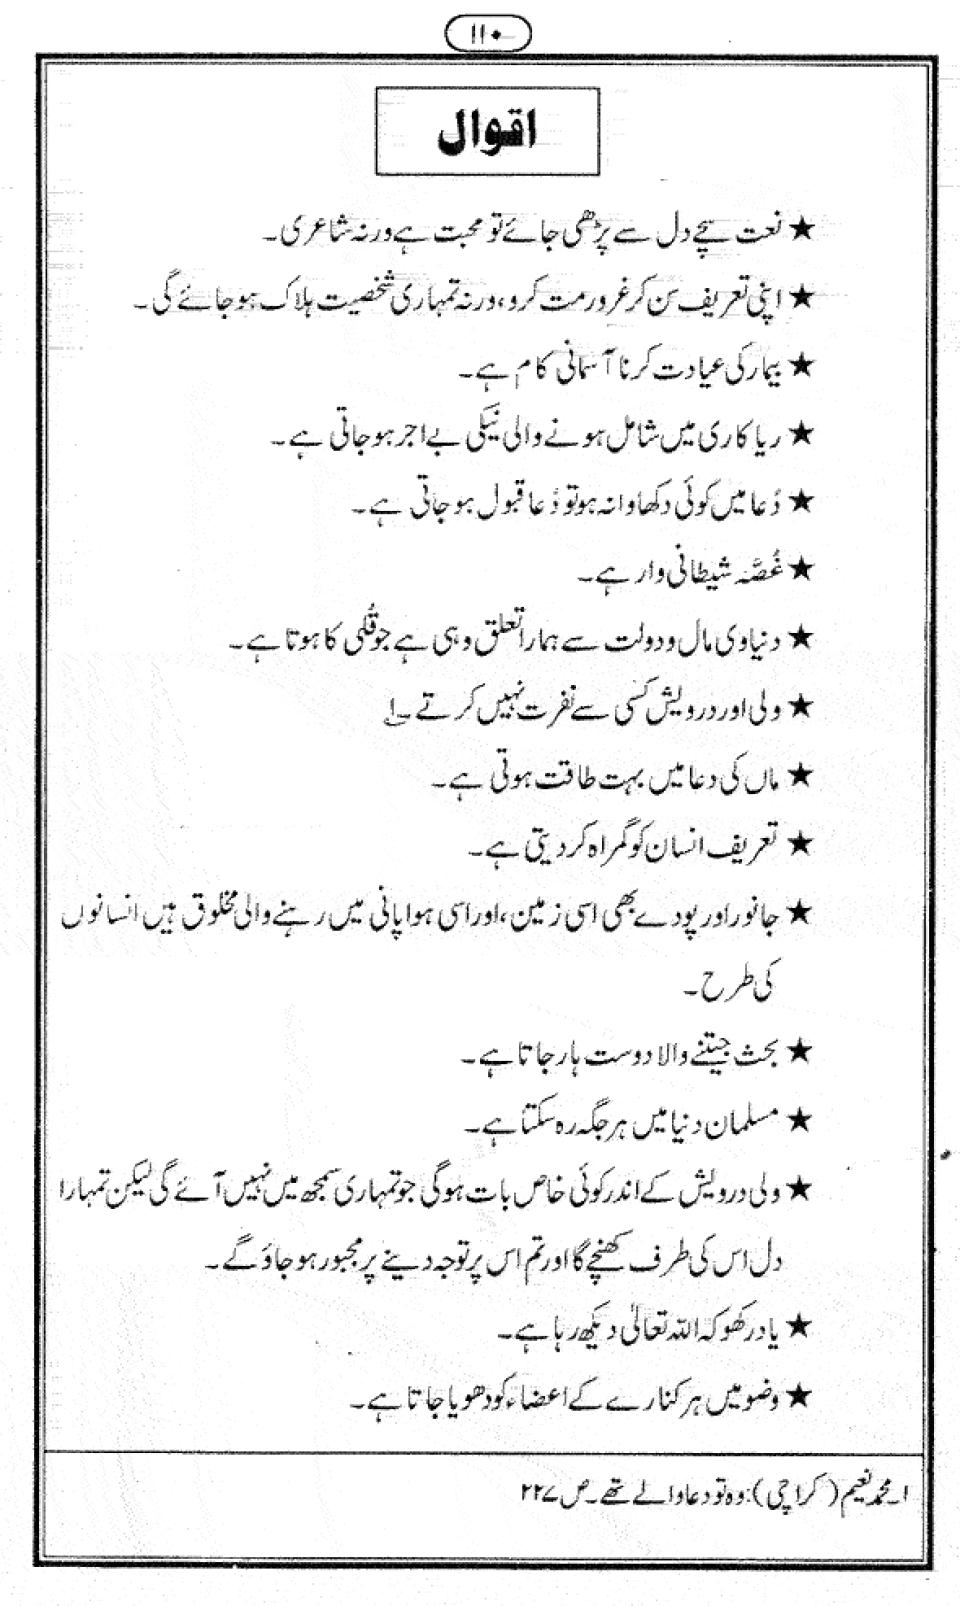 ۱۱۰
اقوال
★ نعت سچے دل سے پڑھی جائے تو محبت ہے ورنہ شاعری۔
★ اپنی تعریف سن کر غرور مت کرو، ورنہ تمہاری شخصیت ہلاک ہو جائے گی۔
★ بیمار کی عیادت کرنا آسمانی کام ہے۔
★ ریا کاری میں شامل ہونے والی نیکی بے اجر ہو جاتی ہے۔
★ دُعا میں کوئی دکھاوا نہ ہو تو دُعا قبول ہو جاتی ہے۔
★ غُصَّہ شیطانی وار ہے۔
★ دنیاوی مال و دولت سے ہمارا تعلق وہی ہے جو قُلی کا ہوتا ہے۔
★ ولی اور درویش کسی سے نفرت نہیں کرتے۔۱
★ ماں کی دعا میں بہت طاقت ہوتی ہے۔
★ تعریف انسان کو گمراہ کر دیتی ہے۔
★ جانور اور پودے بھی اسی زمین، اور اسی ہوا پانی میں رہنے والی مخلوق ہیں انسانوں
کی طرح۔
★ بحث جیتنے والا دوست ہار جاتا ہے۔
★ مسلمان دنیا میں ہر جگہ رہ سکتا ہے۔
★ ولی درویش کے اندر کوئی خاص بات ہوگی جو تمہاری سمجھ میں نہیں آئے گی لیکن تمہارا
دل اس کی طرف کھنچے گا اور تم اس پر توجہ دینے پر مجبور ہو جاؤ گے۔
★ یاد رکھو کہ اللہ تعالیٰ دیکھ رہا ہے۔
★ وضو میں ہر کنارے کے اعضاء کو دھویا جاتا ہے۔
۱۔ محمد نعیم (کراچی): وہ تو دعا والے تھے۔ ص ۲۲۷